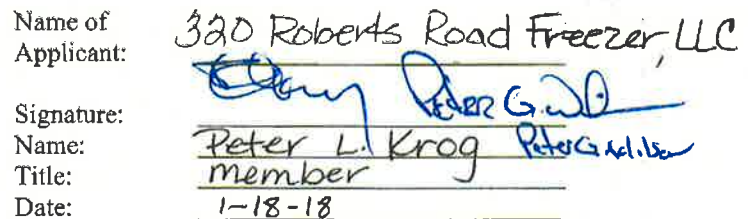 Name of 320 Roberts Road Freezer, LLC
Applicant:
Signature: Peter G.
Name: Peter L. Krog Peter G.
Title: member
Date: 1-18-18